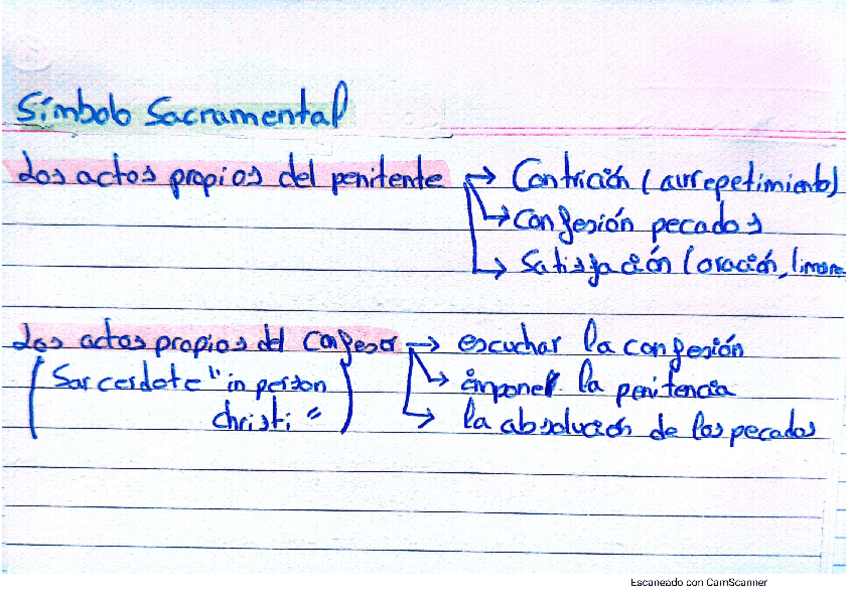 Símbolo Sacramental
Los actos propios del penitente → Contrición (arrepetimiento)
→ Confesión pecados
→ Satisfacción (oración, limosna
Los actos propios del Confesor → escuchar la confesión
(Sarcerdote "in person → imponer la penitencia
christi") → la absolución de los pecados
Escaneado con CamScanner